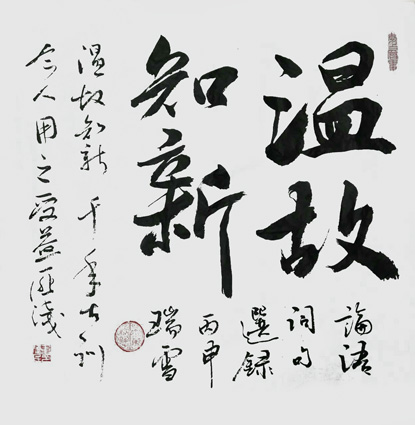 温故
知新
論語
詞句
選録
丙申
瑞雪
温故知新 千年古训
今人用之受益匪淺